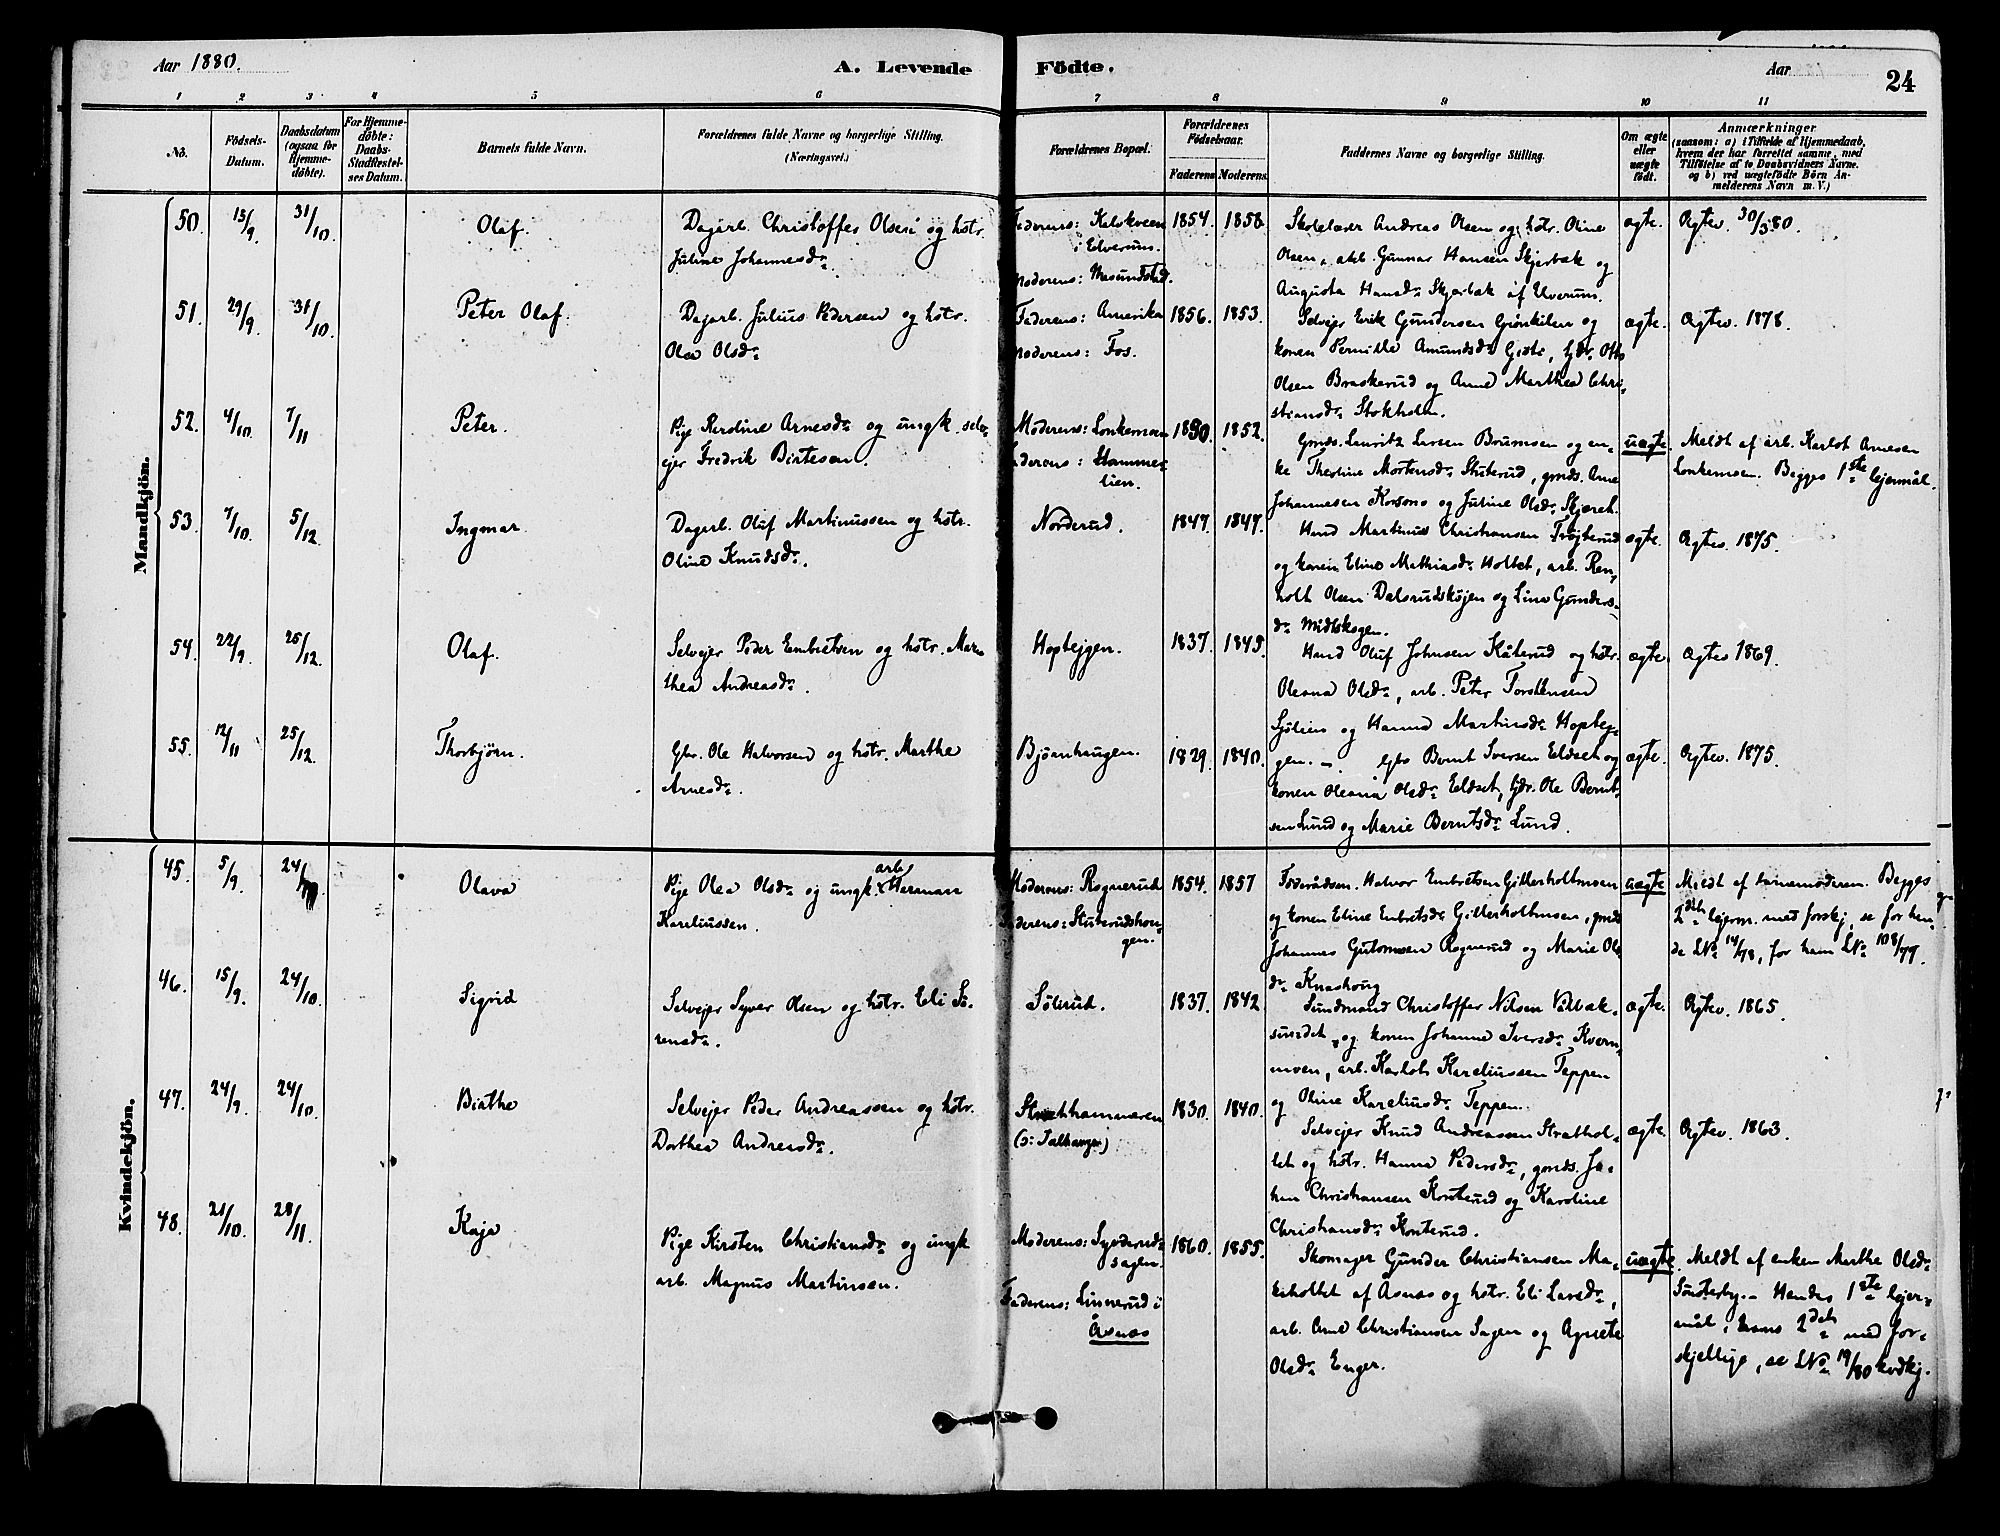 Aar 1880.
A. Levende Födte.
Aar
24
1 2 3 4 5 6 7 8 9 10 11
No.
Födsels-Datum.
Daabsdatum (ogsaa for Hjemmedöbte).
For Hjemmedöbte: Daabs-Stadfæstelses Datum.
Barnets fulde Navn.
Forældrenes fulde Navne og borgerlige Stilling.
(Næringsvei.)
Forældrenes Bopæl.
Forældrenes Födselsaar.
Faderens Moderens.
Faddernes Navne og borgerlige Stilling.
Om ægte eller uægte födt.
Anmærkninger
(saasom: a) i Tilfælde af Hjemmedaab, hvem der har forrettet samme, med Tilföielse af to Daabsvidners Navne. og b) ved uægtefödte Börn Anmelderens Navn m. V.)
Mandkjön.
50. 13/9 31/10 Olaf. Dagarb. Christoffer Olsen og hstr.
Juline Johannesdr
Faderens: Kelskveen
i Elverum.
Moderens: Masundstad.
1854. 1858.
Skolelærer Andreas Olsen og hstr. Oline
Olsen, arb. Gunnar Hansen Skjerbæk og
Augusta Hansdr Skjerbæk af Elverum.
ægte. Ægtev. 30/5 80.
51. 29/9 31/10 Peter Olaf. Dagarb. Julius Pedersen og hstr.
Olea Olsdr
Faderens: Amerika
Moderens: Fos.
1856. 1853.
Selvejer Erik Gundersen Grønkilen og
konen Pernille Amundsdr Giæte, gdr. Otto
Olsen Braskerud og Anne Marthea Chri-
stiansdr Stokholm.
ægte. Ægtev. 1878.
52. 4/10 7/11 Peter. Pige Karoline Arnesdr og ungk. selv-
ejer Fredrik Birtesen.
Moderens: Lonkemoen
Faderens: Stamme-
lien.
1850. 1852.
Gmds. Lauritz Larsen Brumoen og en-
ke Theoline Mortensdr Stuterud, gmds. Arne
Johannesen Korsmo og Juline Olsdr Skjæret.
uægte Meldt af arb. Karlot Arnesen
Lonkemoen. Begges 1ste lejermål.
53. 7/10 5/12 Ingmar. Dagarb. Oluf Martinussen og hstr.
Oline Knudsdr.
Norderud. 1847. 1847.
Hmd Martinus Christiansen Trøjterud
og konen Eline Mathiasdr Holtet, arb. Ren-
holt Olsen Dalsrudskøjen og Lina Gunders-
dr Midtskogen.
ægte. Ægtev. 1875.
54. 22/9 25/12 Olaf. Selvejer Peder Embretsen og hstr. Mar-
thea Andreasdr.
Hoptejgen. 1837. 1845.
Hmd Oluf Johnsen Kåterud og hstr.
Oleana Olsdr, arb. Peter Torstensen
Sjølien og Hanna Martinsdr Hoptej-
gen.
ægte. Ægtev 1869.
55. 12/11 25/12 Thorbjörn. Gbr. Ole Halvorsen og hstr. Marthe
Arnesdr.
Bjørnhaugen. 1829. 1840.
Gbr Bernt Iversen Eldset og
konen Oleana Olsdr Eldset, gdr. Ole Bernt-
sen Lund og Marie Berntsdr Lund.
ægte. Ægtev. 1875.
Kvindekjön.
45. 5/9 24/10 Olava Pige Olea Olsdr og ungk. arb. Herman
Kareliussen.
Moderens: Rognerud
Faderens: Stuterudshau-
gen.
1854. 1857
Føderådsm. Halvor Embretsen Gitterholtmoen
og konen Eline Embretsdr Gitterholtmoen, gmds
Johannes Gutomsen Rognerud og Marie Ols-
dr Knashoug
uægte Meldt af barnemoderen. Begges
2det lejerm. med forskj, se for hen-
de LNo 14/78, for ham LNo 108/79.
46. 15/9 24/10 Sigrid Selvejer Syver Olsen og hstr. Eli Sø-
rensdr.
Sølerud. 1837. 1842.
Sundmand Christoffer Nilsen Vålbæk-
sundet og konen Johanne Iversdr Kvern-
moen, arb. Karlot Kareliussen Teppen
og Oline Kareliusdr Teppen.
ægte. Ægtev. 1865.
47. 24/9 24/10 Birthe Selvejer Peder Andreassen og hstr.
Dorthea Andreasdr.
Strethammeren
1830. 1840.
Selvejer Knud Andreassen Strathol-
tet og hstr. Hanna Pedersdr, gmds. Jo-
han Christiansen Konterud og Karoline
Christiansdr Konterud.
ægte. Ægtev. 1863.
48. 21/10 28/11 Kaja Pige Kirsten Christiansdr og ungk
arb. Magnus Martinsen.
Moderens: Syversruds-
sagen.
Faderens: Linnerud i
Åsnæs
1860. 1855.
Skomager Gunder Christiansen Ma-
keholtet af Åsnæs og hstr. Eli Larsdr,
arb. Arne Christiansen Sagen og Agnete
Olsdr Enger.
uægte. Meldt af enken Marthe Olsdr
Sønsterby. - Hendes 1ste lejer-
mål, hans 2det med for-
skjellige, se LNo 19/80 kvdkj.